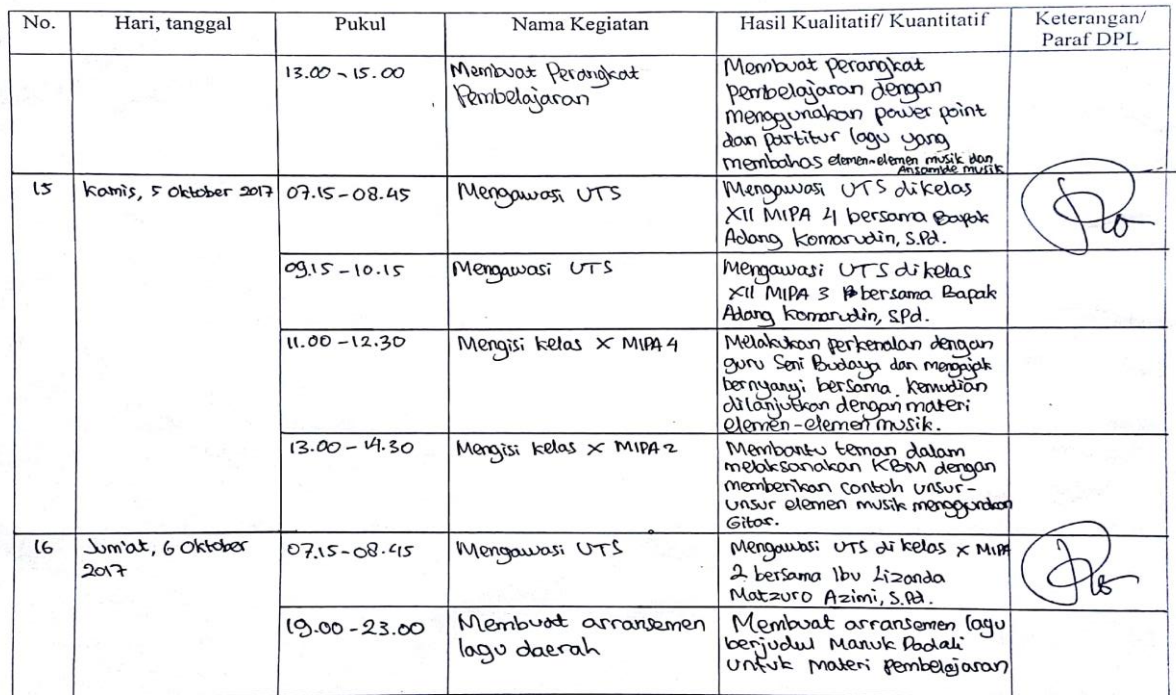 No. Hari, tanggal Pukul Nama Kegiatan Hasil Kualitatif/ Kuantitatif Keterangan/
Paraf DPL
13.00 - 15.00 Membuat Perangkat Membuat perangkat
Pembelajaran pembelajaran dengan
menggunakan power point
dan partitur lagu yang
membahas elemen-elemen musik dan
Ansamble musik
15 Kamis, 5 Oktober 2017 07.15 - 08.45 Mengawasi UTS Mengawasi UTS dikelas
XII MIPA 4 bersama Bapak
Adang Komarudin, S.Pd.
09.15 - 10.15 Mengawasi UTS Mengawasi UTS dikelas
XII MIPA 3 bersama Bapak
Adang Komarudin, SPd.
11.00 - 12.30 Mengisi kelas X MIPA 4 Melakukan perkenalan dengan
guru Seni Budaya dan mengajak
bernyanyi bersama. Kemudian
dilanjutkan dengan materi
elemen-elemen musik.
13.00 - 14.30 Mengisi kelas X MIPA 2 Membantu teman dalam
melaksanakan KBM dengan
memberikan contoh unsur-
unsur elemen musik menggunakan
Gitar.
16 Jum'at, 6 Oktober 07.15 - 08.45 Mengawasi UTS Mengawasi UTS di kelas X MIPA
2017 2 bersama Ibu Lizanda
Matzuro Azimi, S.Pd.
19.00 - 23.00 Membuat arransemen Membuat arransemen lagu
lagu daerah berjudul Manuk Dadali
untuk materi pembelajaran